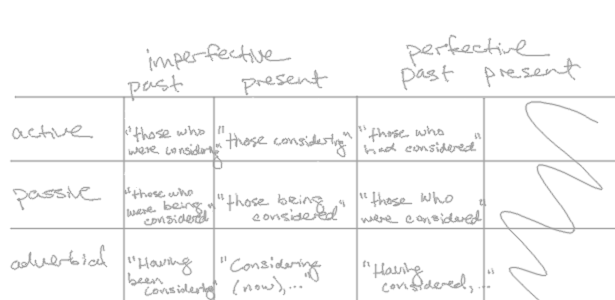 imperfective perfective
past present past present
active "those who were considering" "those considering" "those who had considered"
passive "those who were being considered" "those being considered" "those who were considered"
adverbial "Having been considering" "Considering (now),..." "Having considered,..."